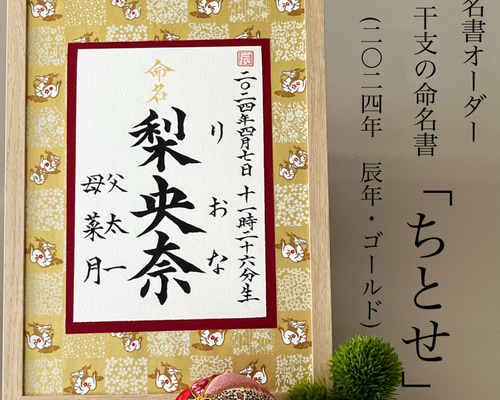 名書オーダー
干支の命名書
「ちとせ」
(二〇二四年 辰年・ゴールド)
辰
二〇二四年四月七日 十一時二十六分生
命名
りおな
梨央奈
父 太一
母 菜月